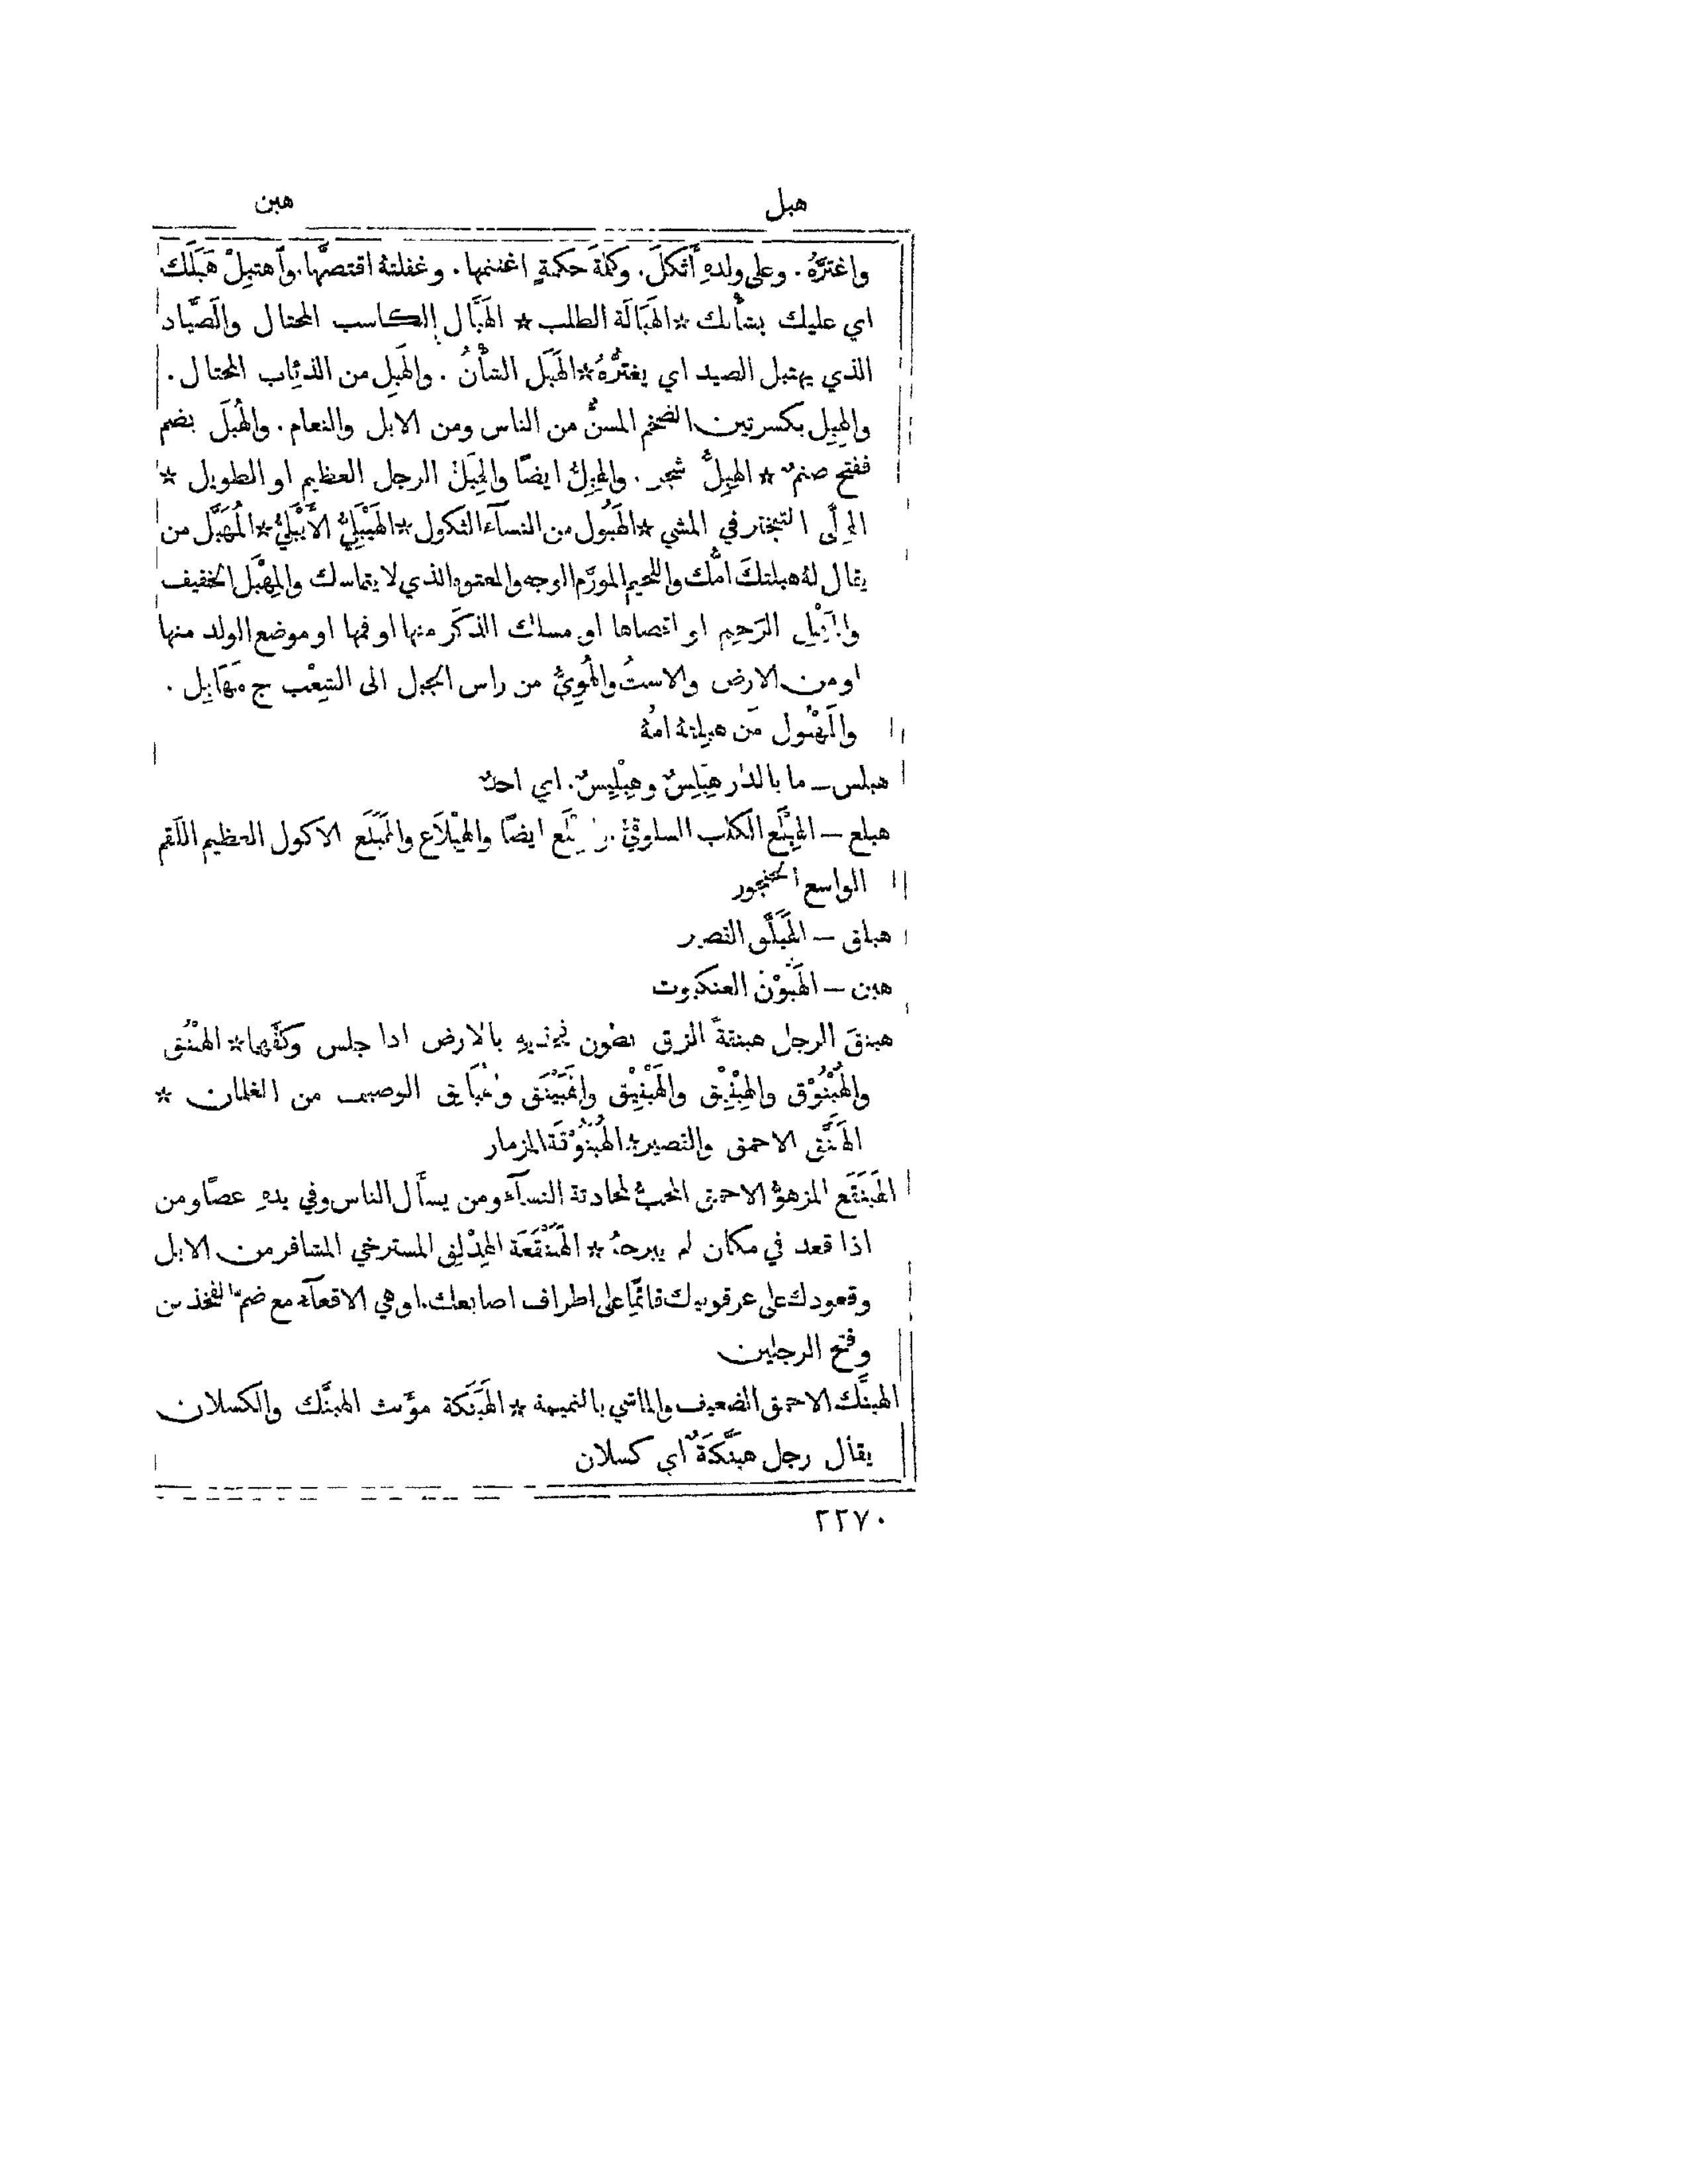 هبل
هبن
واغترَّهُ . وعلى ولدهِ أثكلَ . وكلمةَ حكمةٍ اغتنمها . وغفلتهُ اقتصَّها . وٱهتبِلْ هَبَلَك
اي عليك بشأنك ☆ الهَبَالَة الطلب ☆ الهَبَّال الكاسب المحتال والصَّيَّاد
الذي يهتبل الصيد اي يغترُّهُ ☆ الهَبَل الشأْنُ . والهَبِل من الذئاب المحتال .
والهِبِل بكسرتين الضخم المسنُّ من الناس ومن الابل والنعام . والهُبَل بضم
ففتح صنمٌ ☆ الهِبِلُّ شجر . والهِبِلّ ايضًا والهِبَلّ الرجل العظيم او الطويل ☆
التبختر في المشي ☆ الهَبُول من النسآء الثكول ☆ الهَيْبَلِيُّ الأَيْبَلِيُّ ☆ المُهَبَّل من
يقال لهُ هبلتكَ امُّك واللحيم المورَّم الوجه والمعتوه الذي لا يتماسك والمِهْبَل الخفيف
الرَحِم او اقصاها او مسلك الذكَر منها او فمها او موضع الولد منها
او من الارض والاستُ والهُوِيُّ من راس الجبل الى الشِعْب ج مَهَابِل .
والمَهْبُول مَن هبلتهُ امهُ
هبلس ــ ما بالدار هِبْلِسٌ وهِبْلِيسٌ . اي احدٌ
هبلع ــ الهِبْلَع الكلب السلوقيُّ . ايضًا والهِبْلاَع والهَبَلَّع الاكول العظيم اللَقم
الواسع الحنجور
هبلق ــ الهَبَلَّق القصير
هبن ــ الهَبُّوْن العنكبوت
هبنقَ الرجل هبنقةً الزق بطون فخذيهِ بالارض اذا جلس وكفَّهما ☆ الهُبْنُق
والهُبْنُوْق والهِبْنِيْق والهَبْنِيْق والهَبَيْنَق والهُبَانِق الوصيف من الغلمان ☆
الهَبَنَّق الاحمق والقصير ☆ الهُبْنُوْقَة المزمار
الهَبَنْقَع المزهوُّ الاحمق المحبُّ لمحادثة النسآء ومن يسأَل الناس وفي يدهِ عصًا ومن
اذا قعد في مكان لم يبرحهُ ☆ الهَبَنْقَعَة الهِدْلِق المسترخي المشافر من الابل
وقعودك على عرقوبيك قائمًا على اطراف اصابعك . او هي الاقعآء مع ضمّ الفخذين
وفتح الرجلين
الهبنَّك الاحمق الضعيف والماشي بالنميمة ☆ الهَبَنَّكة مؤنث الهبنَّك والكسلان
يقال رجل هبَنَّكَةٌ اي كسلان
٢٢٧٠